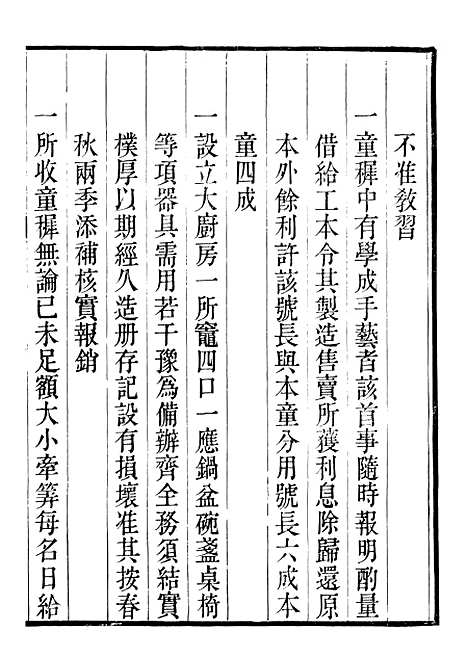 不准敎習
一童穉中有學成手藝者該首事隨時報明酌量
借給工本令其製造售賣所獲利息除歸還原
本外餘利許該號長與本童分用號長六成本
童四成
一設立大廚房一所竈四口一應鍋盆碗盞桌椅
等項器具需用若干豫爲備辦齊全務須結實
樸厚以期經久造册存記設有損壞准其按春
秋兩季添補核實報銷
一所收童穉無論已未足額大小牽算每名日給